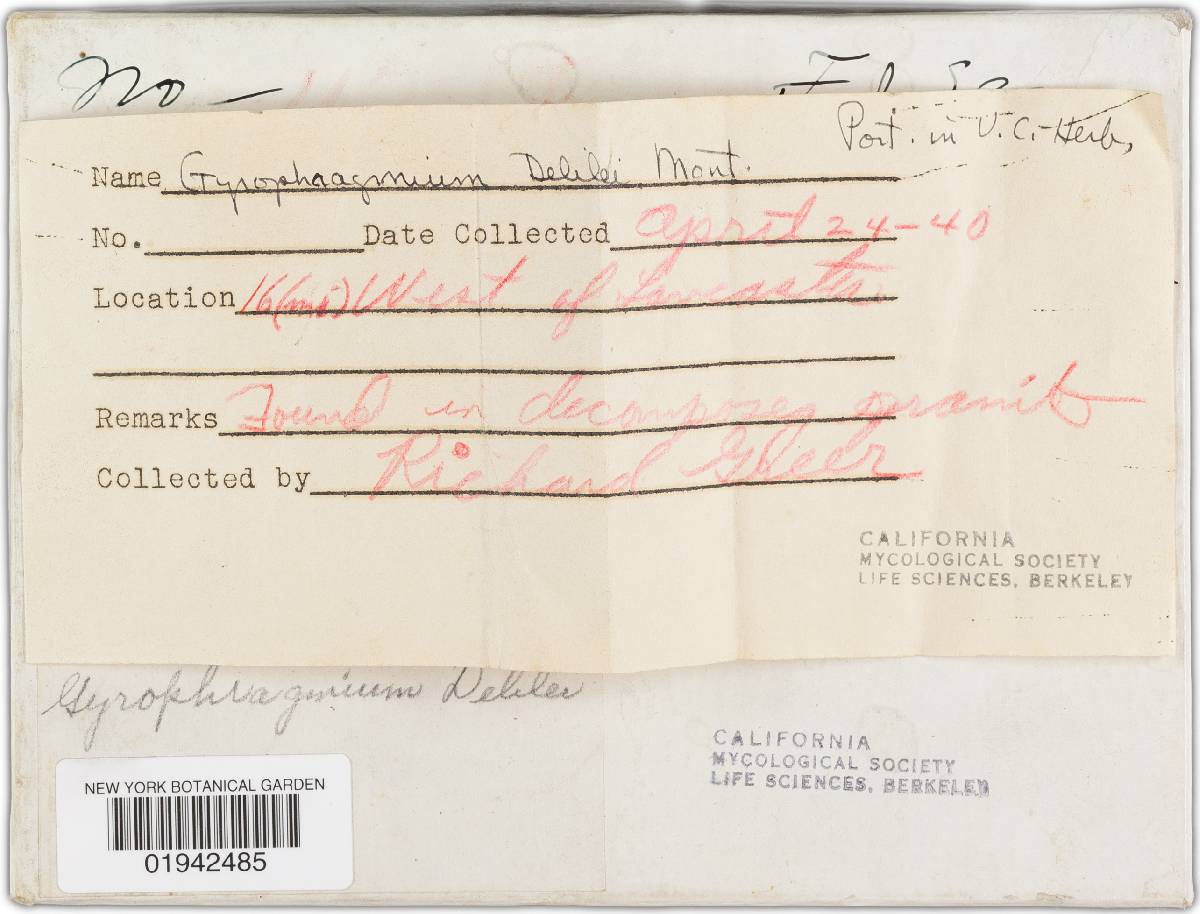 No -
Port. in U.C.-Herb,
Name Gyrophragmium Delilei Mont.
No. Date Collected April 24-40
Location 16(mi) West of Lancaster.
Remarks Found in decomposed granit
Collected by Richard
CALIFORNIA
MYCOLOGICAL SOCIETY
LIFE SCIENCES, BERKELEY
Gyrophragmium Delilei
CALIFORNIA
MYCOLOGICAL SOCIETY
LIFE SCIENCES, BERKELEY
NEW YORK BOTANICAL GARDEN
01942485